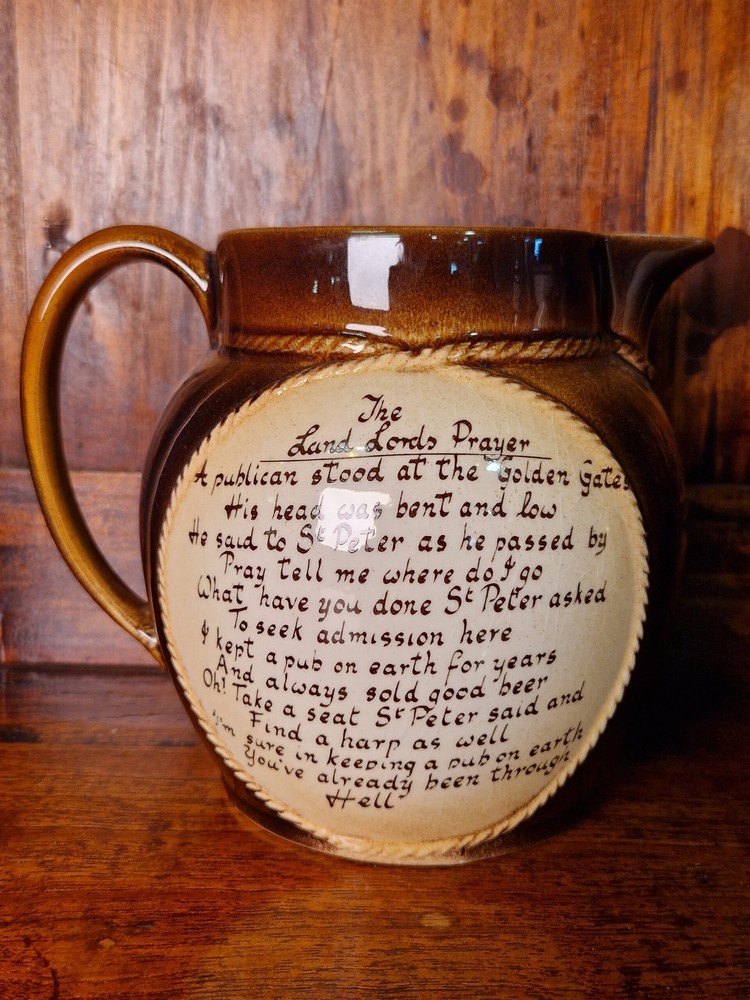 The
Land Lords Prayer
A publican stood at the Golden Gates
His head was bent and low
He said to St Peter as he passed by
Pray tell me where do I go
What have you done St Peter asked
To seek admission here
I kept a pub on earth for years
And always sold good beer
Oh! Take a seat St Peter said and
Find a harp as well
I'm sure in keeping a pub on earth
You've already been through
Hell